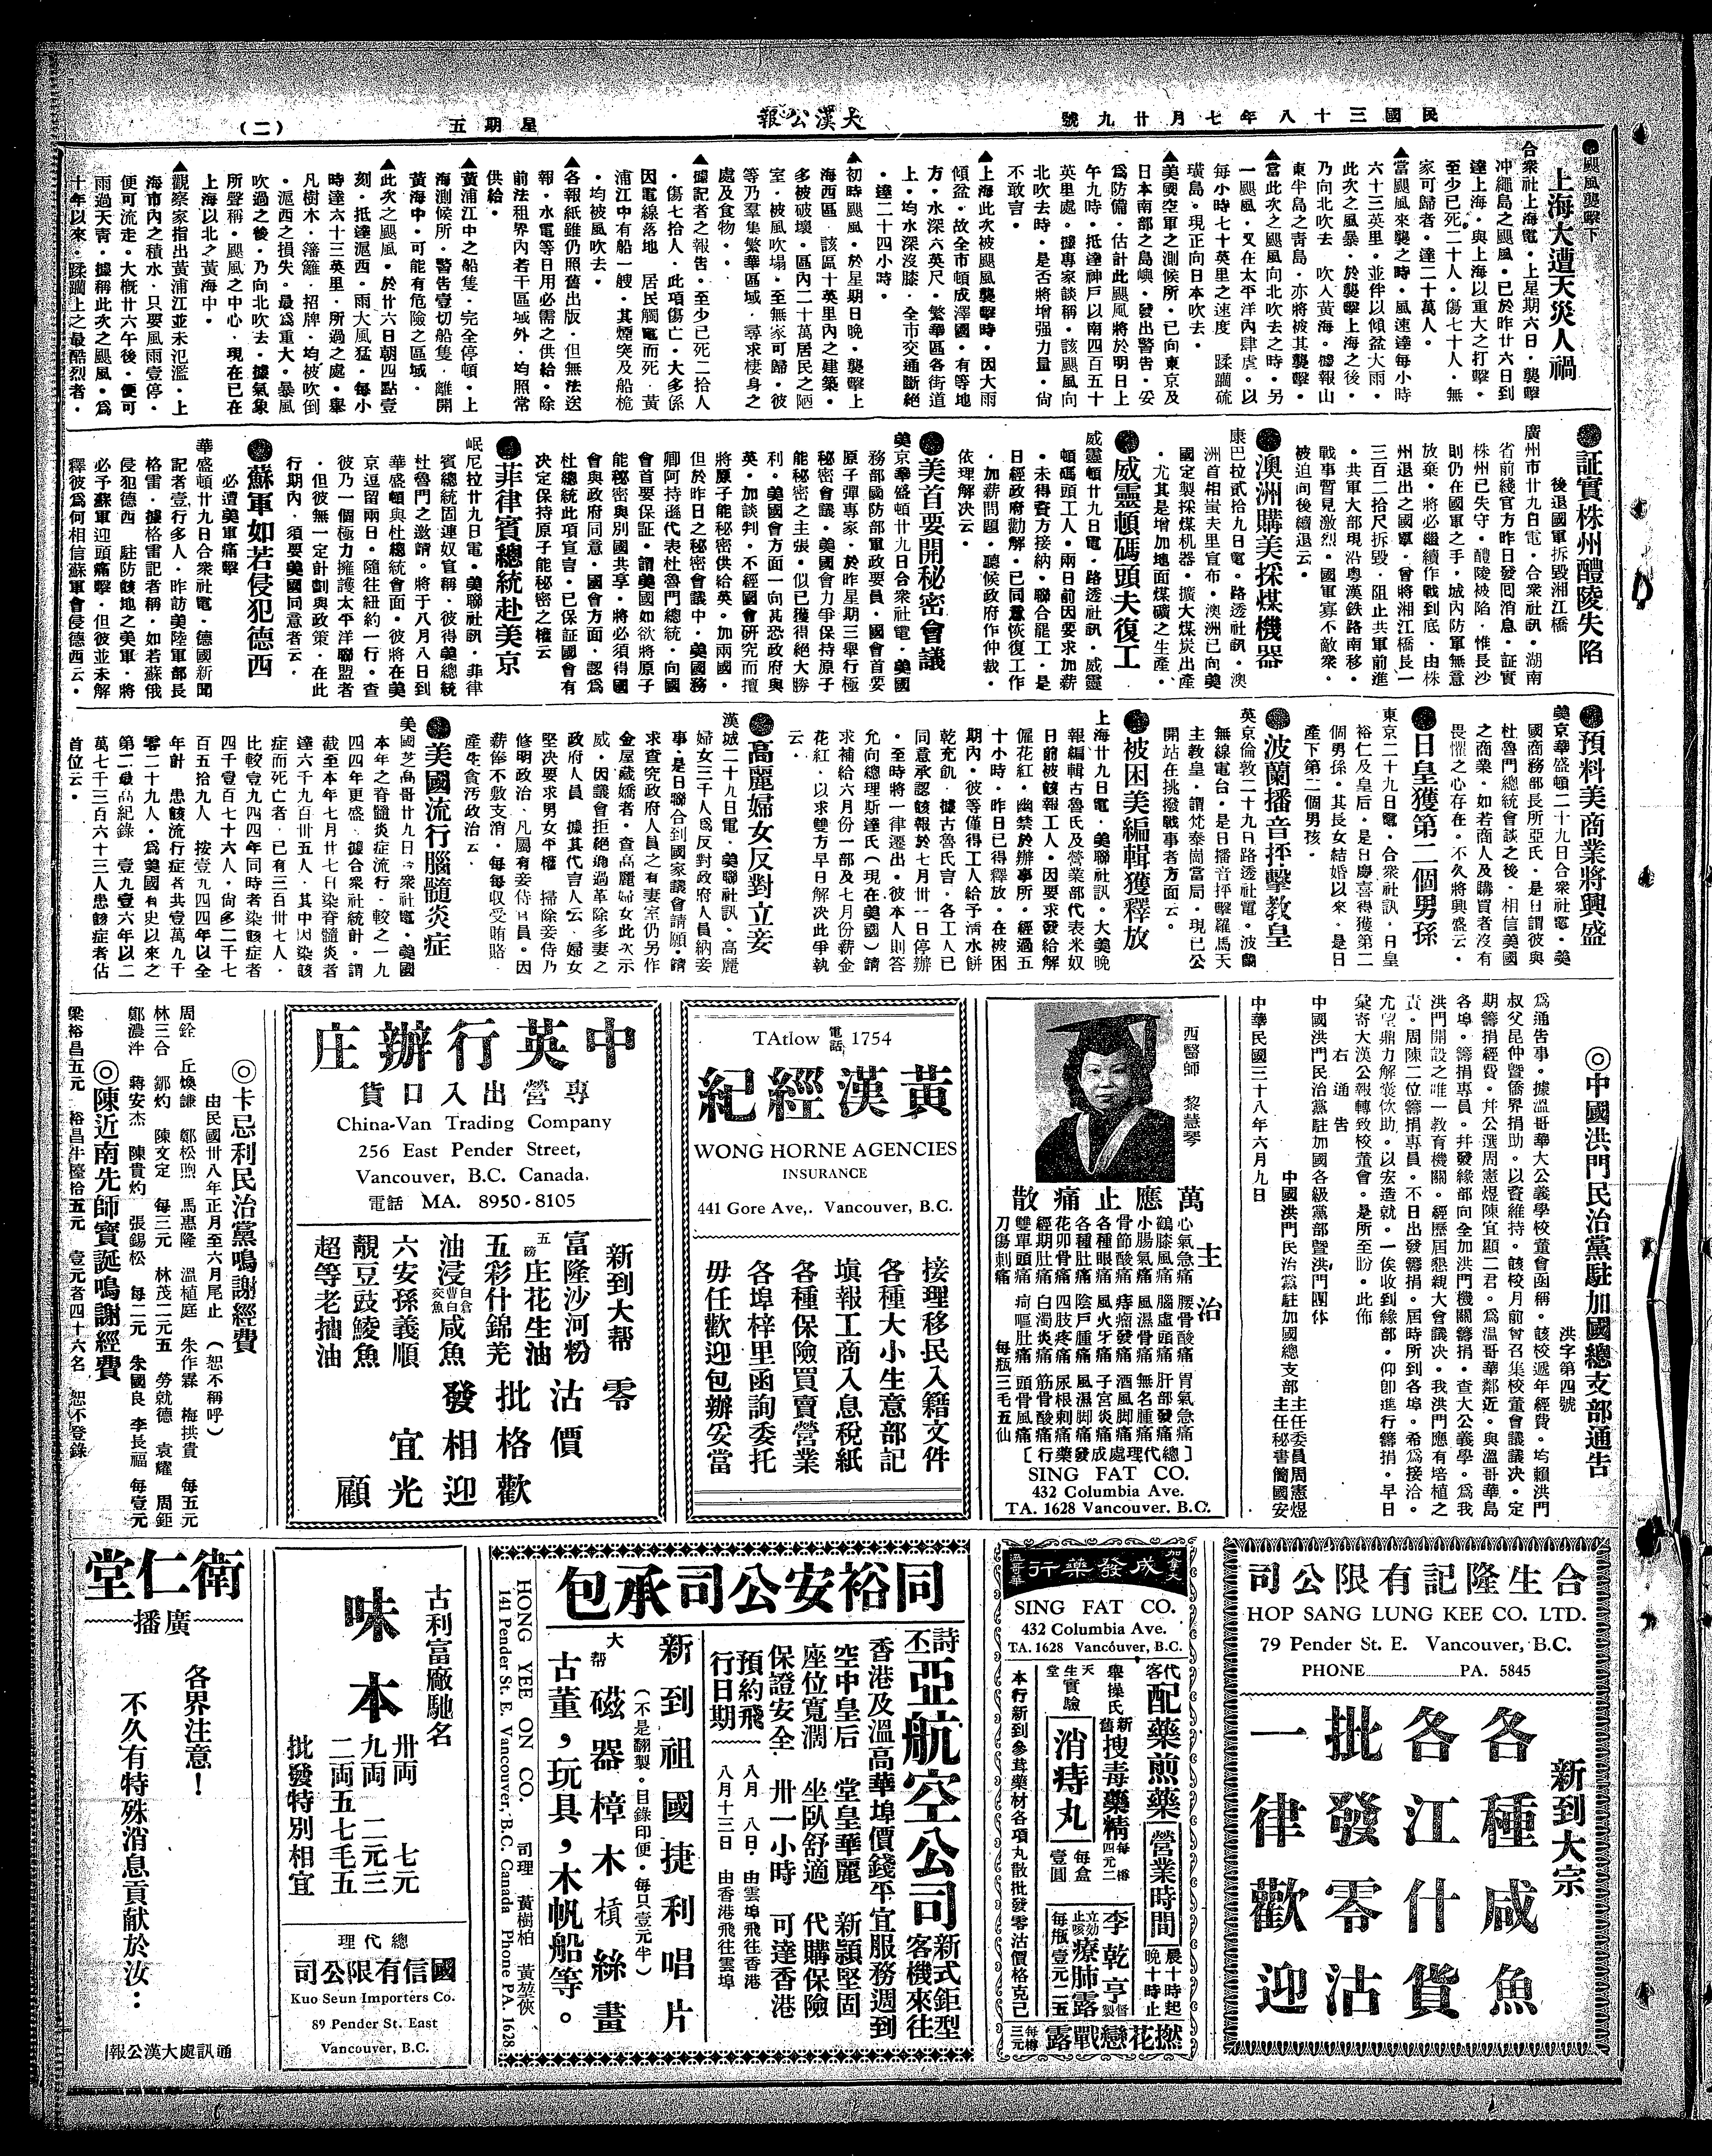 民國三十八年七月廿九號
大漢公報
星期五
(二)
●颶風襲擊下
上海大遭天災人禍
合衆社上海電・上星期六日・襲擊
冲繩島之颶風・已於昨廿六日到
達上海・與上海以重大之打擊・
至少已死二十人・傷七十人・無
家可歸者・達二十萬人。
▲當颶風來襲之時・風速達每小時
六十三英里・並伴以傾盆大雨・
此次之風暴・於襲擊上海之後・
乃向北吹去 吹入黃海。據報山
東半島之青島・亦將被其襲擊・
▲當此次之颶風向北吹去之時・另
一颶風・又在太平洋內肆虐。以
每小時七十英里之速度 蹂躪硫
磺島。現正向日本吹去・
▲美國空軍之測候所・已向東京及
日本南部之島嶼・發出警告・妥
爲防備・估計此颶風將於明日上
午九時・抵達神戶以南四百五十
英里處。據專家談稱・該颶風向
北吹去時・是否將增强力量・尙
不敢言・
▲上海此次被颶風襲擊時・因大雨
傾盆・故全市頓成澤國・有等地
方・水深六英尺・繁華區各街道
上・均水深沒膝・全市交通斷絕
・達二十四小時。
▲初時颶風・於星期日晚・襲擊上
海西區・該區十英里內之建築・
多被破壞・區內二十萬居民之陋
室・被風吹塌・至無家可歸・彼
等乃羣集繁華區域・尋求棲身之
處及食物。
▲據記者之報告・至少已死二拾人
・傷七拾人・此項傷亡・大多係
因電線落地 居民觸電而死・黃
浦江中有船一艘・其煙突及船桅
・均被風吹去・
▲各報紙雖仍照舊出版・但無法送
報・水電等日用必需之供給・除
前法租界內若干區域外・均照常
供給・
▲黃浦江中之船隻・完全停頓・上
海測候所・警告壹切船隻・離開
黃海中・可能有危險之區域・
▲此次之颶風・於廿六日朝四點壹
刻・抵達滬西・雨大風猛・每小
時達六十三英里・所過之處・舉
凡樹木・籓籬・招牌・均被吹倒
・滬西之損失・最爲重大・暴風
吹過之後・乃向北吹去・據氣象
所聲稱・颶風之中心・現在已在
上海以北之黃海中・
▲觀察家指出黃浦江並未氾濫・上
海市內之積水・只要風雨壹停・
便可流走・大槪廿六午後・便可
雨過天靑・據稱此次之颶風・爲
十年以來・蹂躪上之最酷烈者・
●証實株州醴陵失陷
後退國軍拆毀湘江橋
廣州市廿九日電・合衆社訊・湖南
省前綫官方昨日發囘消息・証實
株州已失守・醴陵被陷・惟長沙
則仍在國軍之手・城內防軍無意
放棄・將必繼續作戰到底・由株
州退出之國軍・曾將湘江橋長一
三百二拾尺拆毀・阻止共軍前進
・共軍大部現沿粵漢鉄路南移・
戰事暫見激烈。國軍寡不敵衆。
被迫向後續退云・
●澳洲購美採煤機器
康巴拉貳拾九日電・路透社訊・澳
洲首相蚩夫里宣布・澳洲已向美
國定製採煤机器・擴大煤炭出產
・尤其是增加地面煤礦之生產・
●威靈頓碼頭夫復工
威靈頓廿九日電・路透社訊・威靈
頓碼頭工人・兩日前因要求加薪
・未得資方接納・聯合罷工・是
日經政府勸解・已同意恢復工作
・加薪問題・聽候政府作仲裁・
依理解決云・
●美首要開秘密會議
美京華盛頓廿九日合衆社電・美國
務部國防部軍政要員・國會首要
原子彈專家・於昨星期三舉行極
秘密會議・美國會力爭保持原子
能秘密之主張・似已獲得絕大勝
利・美國會方面一向甚恐政府與
英・加談判・不經國會研究而擅
將原子能秘密供給英・加兩國・
但於昨日之秘密會議中・美國務
卿阿持遜代表杜魯門總統・向國
會首要保証・謂美國如欲將原子
能秘密與別國共享・將必須得國
會與政府同意・國會方面・認爲
杜總統此項宣言・已保証國會有
决定保持原子能秘密之權云
●菲律賓總統赴美京
岷尼拉廿九日電・美聯社訊・菲律
賓總統固連奴宣稱・彼得美總統
杜魯門之邀請。將于八月八日到
華盛頓與杜總統會面・彼將在美
京逗留兩日・隨往紐約一行・查
彼乃一個極力擁護太平洋聯盟者
・但彼無一定計劃與政策・在此
行期內・須要美國同意者云・
●蘇軍如若侵犯德西
必遭美軍痛擊
華盛頓廿九日合衆社電・德國新聞
記者壹行多人・昨訪美陸軍部長
格雷・據格雷記者稱・如若蘇俄
侵犯德西 駐防該地之美軍・將
必予蘇軍迎頭痛擊・但彼並未解
釋彼爲何相信蘇軍會侵德西云・
●預料美商業將興盛
美京華盛頓二十九日合衆社電・美
國商務部長所亞氏・是日謂彼與
杜魯門總統會談之後・相信美國
之商業・如若商人及購買者沒有
畏懼之心存在・不久將興盛云・
●日皇獲第二個男孫
東京二十九日電・合衆社訊・日皇
裕仁及皇后・是日慶喜得獲第二
個男孫・其長女結婚以來・是日
產下第二個男孩・
●波蘭播音抨擊教皇
英京倫敦二十九日路透社電・波蘭
無線電台・是日播音抨擊羅馬天
主教皇・謂梵泰崗當局・現已公
開站在挑撥戰事者方面云・
●被困美編輯獲釋放
上海廿九日電・美聯社訊・大美晚
報編輯古魯氏及營業部代表米奴
日前被該報工人・因要求發給解
僱花紅・幽禁於辦事所・經過五
十小時・昨日已得釋放・在被困
期內・彼等僅得工人給予淸水餅
乾充飢・據古魯氏言・各工人已
同意承認該報於七月卅一日停辦
・至時將一律遷出・彼本人則答
允向總理斯達氏(現在美國)請
求補給六月份一部及七月份薪金
花紅・以求雙方早日解決此爭執
云・
●高麗婦女反對立妾
漢城二十九日電・美聯社訊・高麗
婦女三千人爲反對政府人員納妾
事・是日聯合到國家議會請願・請
求查究政府人員之有妻室仍另作
金屋藏嬌者・查高麗婦女此次示
威・因議會拒絕通過革除多妻之
政府人員 據其代言人云・婦女
堅決要求男女平權 掃除妾侍乃
修明政治・凡屬有妾侍官員・因
薪俸不敷支消・每每收受賄賂・
產生食汚政治云・
●美國流行腦髓炎症
美國芝高哥廿九日合衆社電・美國
本年之脊髓炎症流行・較之一九
四四年更盛・據合衆社統計・謂
截至本年七月廿七日染脊髓炎者
達六千九百卅五人・其中因染該
症而死亡者・已有三百卅七人・
比較壹九四四年同時者染該症者
四千壹百七十六人・尙多二千七
百五拾九人 按壹九四四年以全
年計 患該流行症者共壹萬九千
零二十九人・爲美國有史以來之
第二最高紀錄 壹九壹六年以二
萬七千三百六十三人患該症者佔
首位云・
◎中國洪門民治黨駐加國總支部通告
洪字第四號
爲通告事。據溫哥華大公義學校董會函稱。該校遞年經費。均賴洪門
叔父昆仲曁僑界捐助。以資維持。該校月前曾召集校董會議議决。定
期籌捐經費。幷公選周憲煜陳宜顯二君。爲温哥華鄰近。與溫哥華島
各埠。籌捐專員。幷發緣部向全加洪門機關籌捐。查大公義學。爲我
洪門開設之唯一教育機關。經歷屆懇親大會議决。我洪門應有培植之
責。周陳二位籌捐專員。不日出發籌捐。屆時所到各埠。希爲接洽。
尤望鼎力解囊佽助。以宏造就。一俟收到緣部。仰卽進行籌捐。早日
彙寄大漢公報轉致校董會。是所至盼。此佈
右通告
中國洪門民治黨駐加國各級黨部曁洪門團体
中國洪門民治黨駐加國總支部 主任委員周憲煜
主任秘書簡國安
中華民國三十八年六月九日
西醫師 黎慧琴
萬應止痛散
主治
心氣急痛 腰骨酸痛 胃氣急痛
鶴膝風痛 腦虛頭痛 肝部發痛
小腸氣痛 風濕骨痛 無名腫痛
骨節酸痛 痔瘡發痛 酒風脚痛
各種眼痛 風火牙痛 子宮炎痛
各種肚痛 陰戶腫痛 風濕脚痛
花卯骨痛 四肢疼痛 尿根刺痛
經期肚痛 白濁炎痛 筋骨酸痛
雙單頭痛 疴嘔肚痛 頭骨風痛
刀傷刺痛 每瓶三毛五仙
[總代理處成發藥行]
SING FAT CO.
432 Columbia Ave.
TA. 1628 Vancouver. B.C.
TAtlow 電話 1754
黃漢經紀
WONG HORNE AGENCIES
INSURANCE
441 Gore Ave,. Vancouver, B.C.
接理移民入籍文件
各種大小生意部記
塡報工商入息稅紙
各種保險買賣營業
各埠梓里函詢委托
毋任歡迎包辦妥當
中英行辦庄
專營出入口貨
China-Van Trading Company
256 East Pender Street,
Vancouver, B.C. Canada.
電話 MA. 8950-8105
新到大帮
富隆沙河粉
五磅庄花生油
五彩什錦羌
油浸白倉曹白炆魚咸魚
六安孫義順
靚豆豉鯪魚
超等老抽油
零沽批發
價格相宜
歡迎光顧
◎卡忌利民治黨鳴謝經費
由民國卅八年正月至六月尾止 (恕不稱呼)
周銓 丘煥謙 鄒松煦 馬惠隆 溫植庭 朱作霖 梅拱貴 每五元
林三合 鄒灼 陳文定 每三元 林茂二元五 勞就德 袁耀 周鉅
鄭濃泮 蔣安杰 陳貴灼 張錫松 每二元 朱國良 李長福 每壹元
◎陳近南先師寶誕鳴謝經費
梁裕昌五元 裕昌牛檯拾五元 壹元者四十六名 恕不登錄
合生隆記有限公司
HOP SANG LUNG KEE CO. LTD.
79 Pender St. E. Vancouver, B.C.
PHONE PA. 5845
新到大宗
各種咸魚
各江什貨
批發零沽
一律歡迎
加拿大 成發藥行 溫哥華
SING FAT CO.
432 Columbia Ave.
TA. 1628 Vancouver, B.C.
代客配藥煎藥 營業時間 晨十時起 晚十時止
舉操氏新舊搜毒藥精 每樽四元二
李乾亨督製
天生堂實驗 消痔丸 每盒壹圓
立効止咳療肺露 每瓶壹元二五
本行新到參茸藥材各項丸散批發零沽價格克己
撚花戀戰露 每樽三元
同裕安公司承包
詩丕亞航空公司 新式鉅型客機來往
香港及溫高華埠價錢平宜服務週到
空中皇后 堂皇華麗 新穎堅固
座位寬濶 坐臥舒適 代購保險
保證安全 卅一小時 可達香港
預約飛行日期 八月八日・由雲埠飛往香港
八月十三日 由香港飛往雲埠
新到祖國捷利唱片
(不是翻製。目錄印便。每只壹元半)
大帮磁器樟木槓絲畫
古董,玩具,木帆船等。
司理 黃樹柏 黃堃俠
HONG YEE ON CO.
141 Pender St. E. Vancouver, B.C. Canada Phone PA. 1628
古利富廠馳名
味本
卅両 七元
九両 二元三
二両五 七毛五
批發特別相宜
總代理
國信有限公司
Kuo Seun Importers Co.
89 Pender St. East
Vancouver, B.C.
衛仁堂
廣播
各界注意!
不久有特殊消息貢献於汝:
通訊處大漢公報